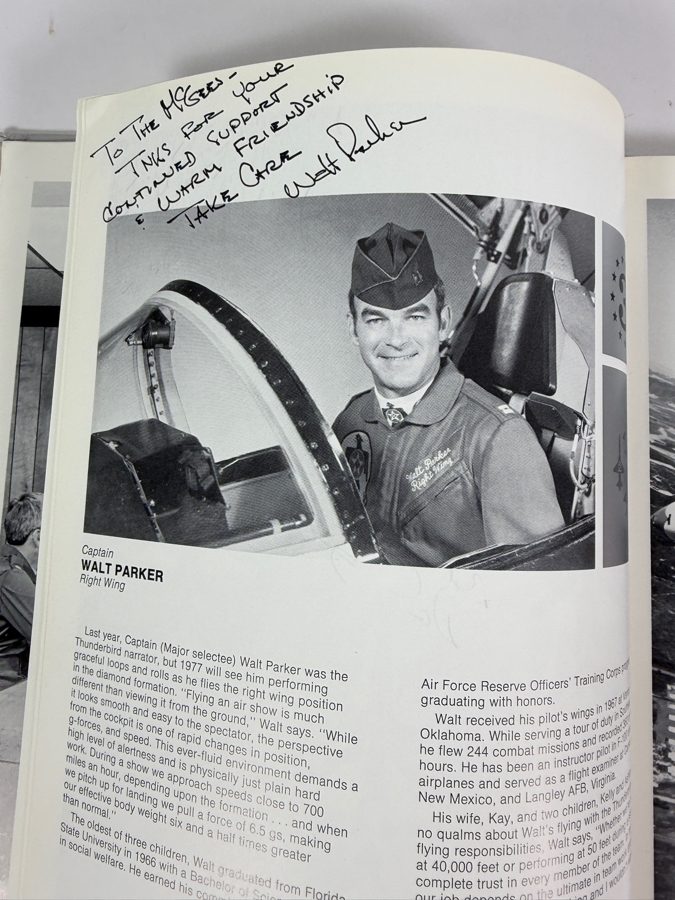 To The McGees -
TNKS FOR YOUR
CONTINUED SUPPORT
& WARM FRIENDSHIP
TAKE CARE
Walt Parker
Walt Parker
Right Wing
Captain
WALT PARKER
Right Wing
Last year, Captain (Major selectee) Walt Parker was the
Thunderbird narrator, but 1977 will see him performing
graceful loops and rolls as he flies the right wing position
in the diamond formation. "Flying an air show is much
different than viewing it from the ground," Walt says. "While
it looks smooth and easy to the spectator, the perspective
from the cockpit is one of rapid changes in position,
g-forces, and speed. This ever-fluid environment demands a
high level of alertness and is physically just plain hard
work. During a show we approach speeds close to 700
miles an hour, depending upon the formation . . . and when
we pitch up for landing we pull a force of 6.5 gs, making
our effective body weight six and a half times greater
than normal."
The oldest of three children, Walt graduated from Florida
State University in 1966 with a Bachelor of
in social welfare. He earned his
Air Force Reserve Officers' Training Corps
graduating with honors.
Walt received his pilot's wings in 1967 at
Oklahoma. While serving a tour of duty in
he flew 244 combat missions and recorded
hours. He has been an instructor pilot in
airplanes and served as a flight examiner at
New Mexico, and Langley AFB, Virginia.
His wife, Kay, and two children, Kelly and
no qualms about Walt's flying with the
flying responsibilities, Walt says, "Whether
at 40,000 feet or performing at 50 feet during
complete trust in every member of the team
our job depends on the ultimate in team work
and I